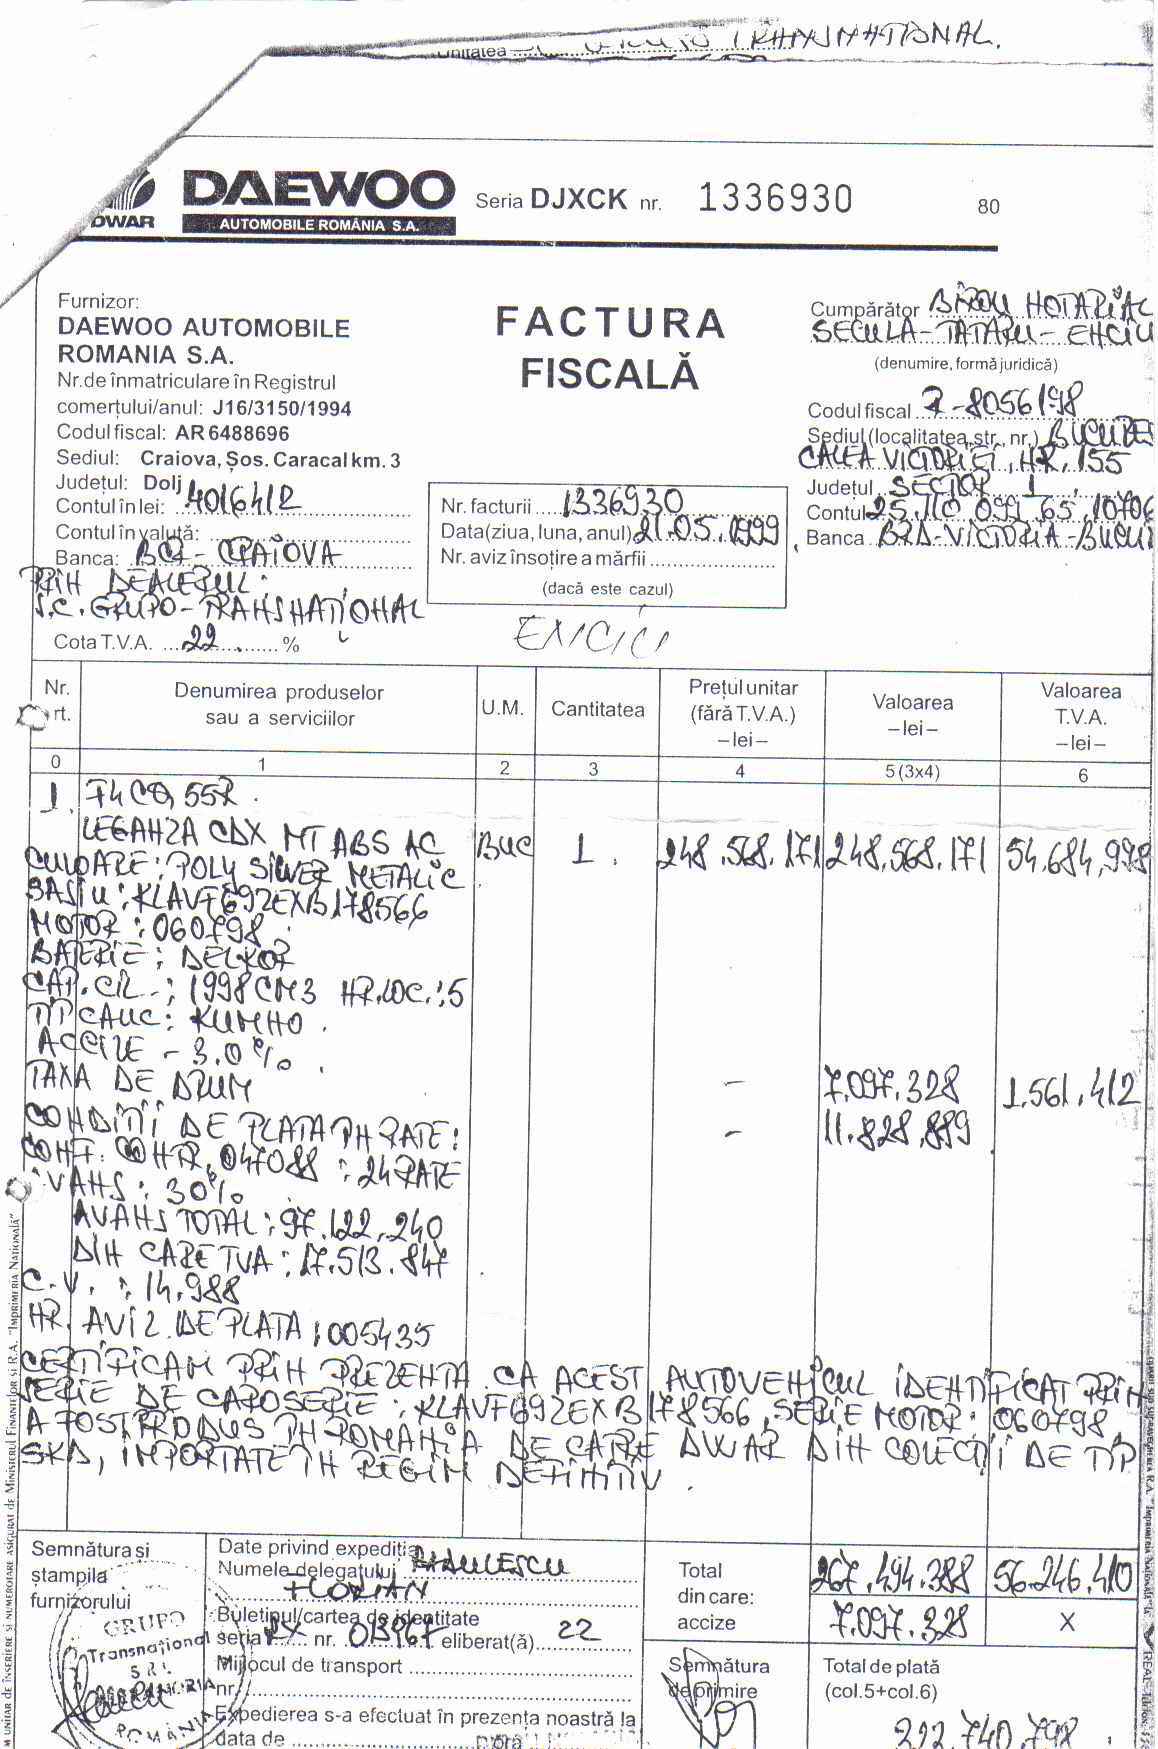 Unitatea
TRANSNATIONAL.
DWAR
DAEWOO
AUTOMOBILE ROMÂNIA S.A.
Seria DJXCK nr. 1336930
80
Furnizor:
DAEWOO AUTOMOBILE
ROMANIA S.A.
Nr.de înmatriculare în Registrul
comerțului/anul: J16/3150/1994
Codul fiscal: AR 6488696
Sediul: Craiova, Șos. Caracal km. 3
Județul: Dolj
Contul în lei: 4016412
Contul în valută:
Banca: BCR - CRAIOVA
PRIN DEALERUL:
S.C. GRUPO-TRANSNATIONAL
Cota T.V.A. 22 %
FACTURA
FISCALĂ
Nr. facturii 1336930
Data(ziua, luna, anul) 21.05.1999
Nr. aviz însoțire a mărfii
(dacă este cazul)
Cumpărător BIROU NOTARIAL
SECULA-TATARU-ENCIU
(denumire, formă juridică)
Codul fiscal R-8056198
Sediul (localitatea, str., nr.) BUCURE
CALEA VICTORIEI, NR. 155
Județul SECTOR 1
Contul 25.110 099 65 10706
Banca BRD-VICTORIA-BUCU
Nr.
rt.
Denumirea produselor
sau a serviciilor
U.M.
Cantitatea
Prețul unitar
(fără T.V.A.)
–lei–
Valoarea
–lei–
Valoarea
T.V.A.
–lei–
0 1 2 3 4 5(3x4) 6
1. F4CQ55R.
LEGANZA CDX MT ABS AC BUC 1. 248.568.171 248.568.171 54.684.998
CULOARE: POLY SILVER METALIC
SASIU: KLAVF692EXB178566
MOTOR: 060798
BATERIE: DELKOR
CAP. CIL.: 1998CM3 NR.LOC.:5
TIP CAUC: KUMHO.
ACCIZE - 3.0% – 7.097.328 1.561.412
TAXA DE DRUM – 11.828.889
CONDITII DE PLATA IN RATE:
CONF. CONTR. 047088: 24 RATE
AVANS: 30%
AVANS TOTAL: 97.122.240
DIN CARE TVA: 17.513.847
C.V.: 14.988
NR. AVIZ DE PLATA: 005435
CERTIFICAM PRIN PREZENTA CA ACEST AUTOVEHICUL IDENTIFICAT PRIN
SERIE DE CAROSERIE: KLAVF692EXB178566, SERIE MOTOR: 060798,
A FOST PRODUS IN ROMANIA DE CATRE DWAR DIN COLECTII DE TIP
SKD, IMPORTATE IN REGIM DEFINITIV.
Semnătura și
ștampila
furnizorului
GRUPO
Transnațional
S R L
ROMÂNIA
Date privind expediția
Numele delegatului RADULESCU
FLORIAN
Buletinul/cartea de identitate
seria nr. 013967 eliberat(ă) 22
Mijlocul de transport
nr.
Expedierea s-a efectuat în prezența noastră la
data de
Total 267.494.388 56.246.410
din care:
accize 7.097.328 X
Semnătura
de primire
Total de plată
(col.5+col.6)